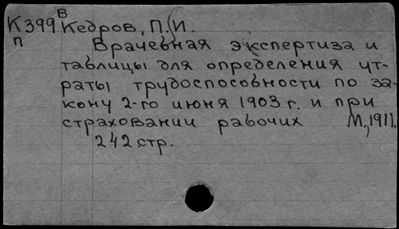 В
К399 Кедров, П.И.
П Врачевная экспертиза и
таблицы для определения ут-
раты трудоспособности по за-
кону 2-го июня 1903 г. и при
страховании рабочих М., 1911.
242 стр.